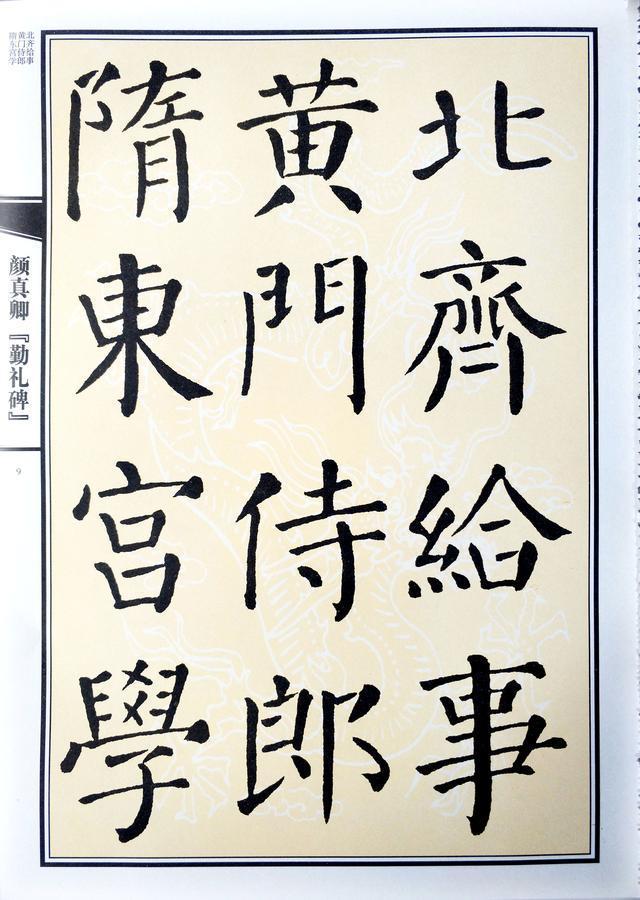 北齊給事
黄門侍郎
隋東宮學
北齐给事
黄门侍郎
隋东宫学
颜真卿『勤礼碑』
9